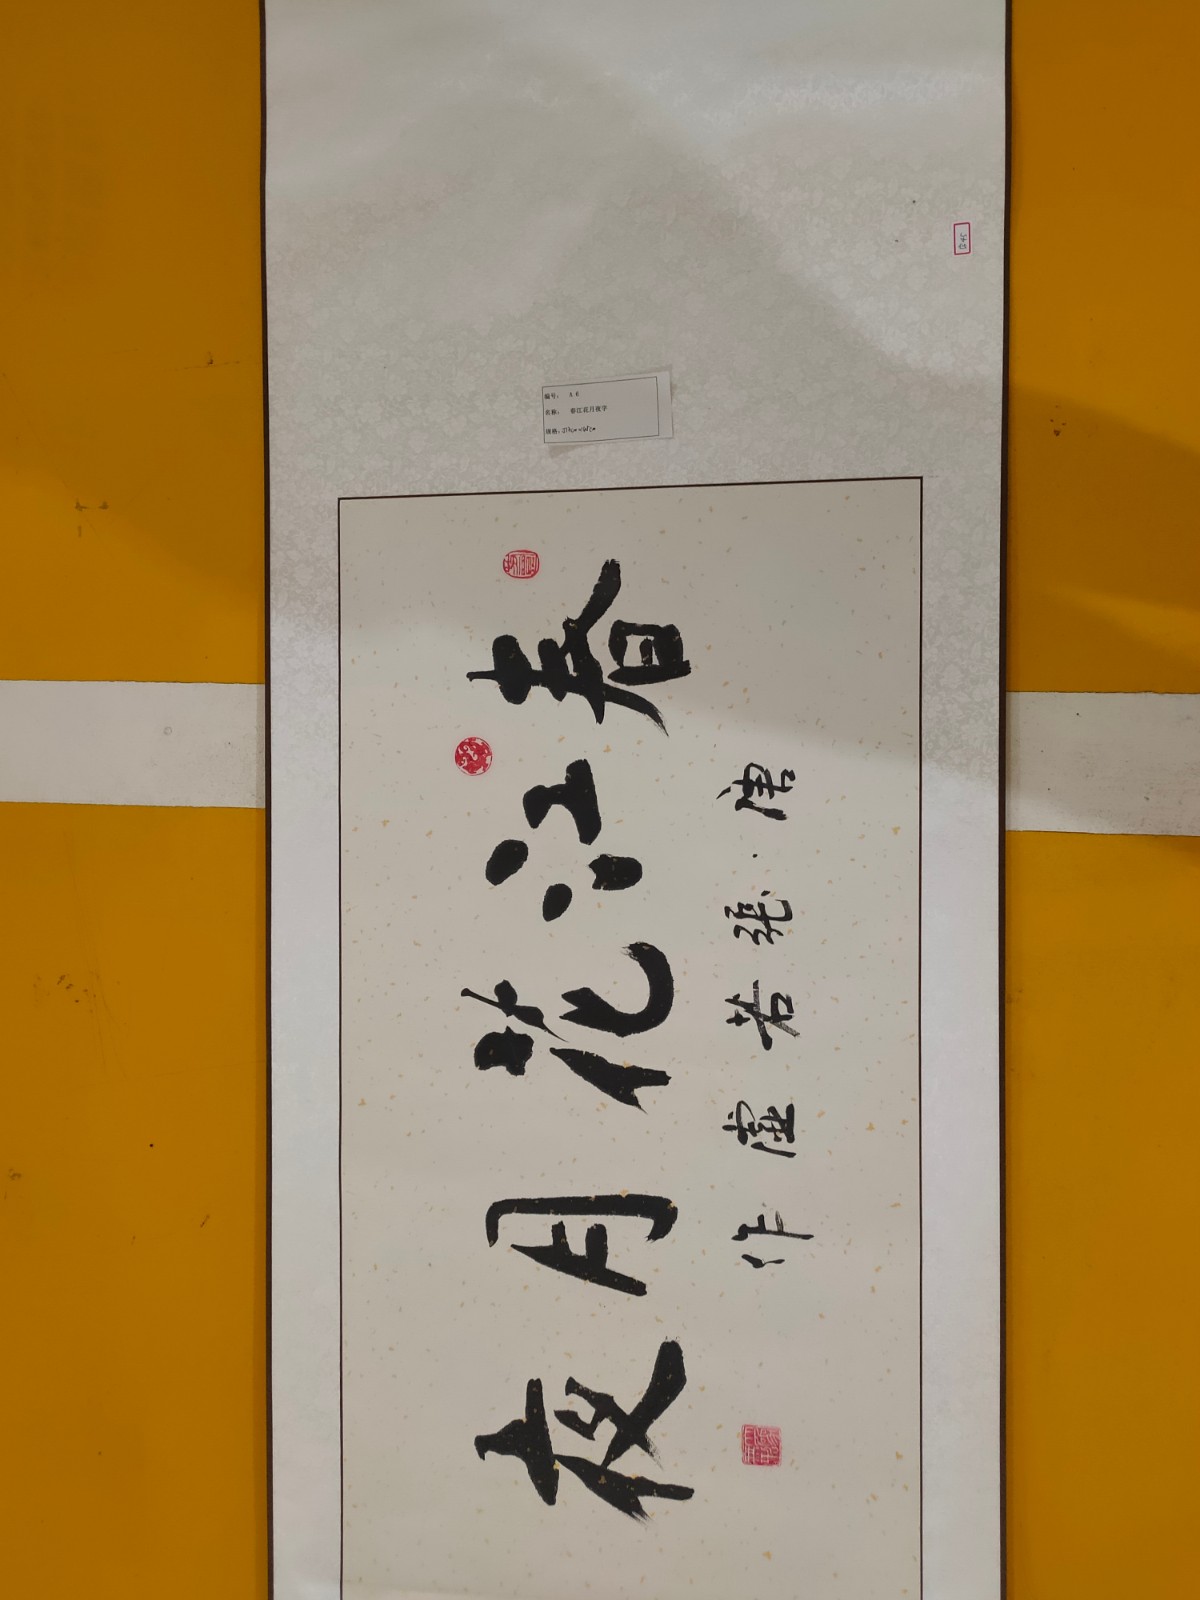 编号： A 8
名称： 春江花月夜字
规格：
春江花月夜
唐·張若虛作